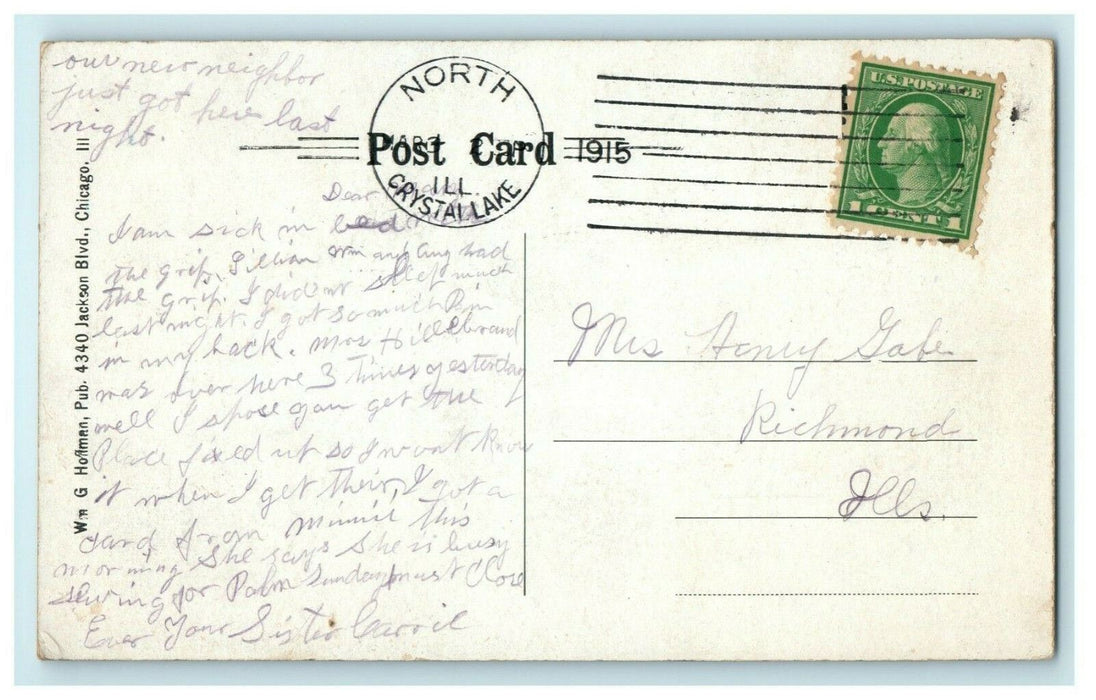 our new neighbor
just got here last
night.
NORTH
MAR
ILL
CRYSTAL LAKE
1915
Post Card
U.S. POSTAGE
1 CENT 1
Wm G Hoffman, Pub. 4340 Jackson Blvd., Chicago, Ill
Dear
I am sick in bed
the grip. Lillian had
the grip. I dident sleep much
last night. I got so much Pain
in my back. Mrs Hillebrand
was over here 3 times yesterday
well I spose you get the
Place fixed up so I wont Know
it when I get their, I got a
card from Minnie this
morning She says She is busy
sewing for Palm Sunday must Close
Ever Your Sister Carrie
Mrs Henry Gabe
Richmond
Ills.